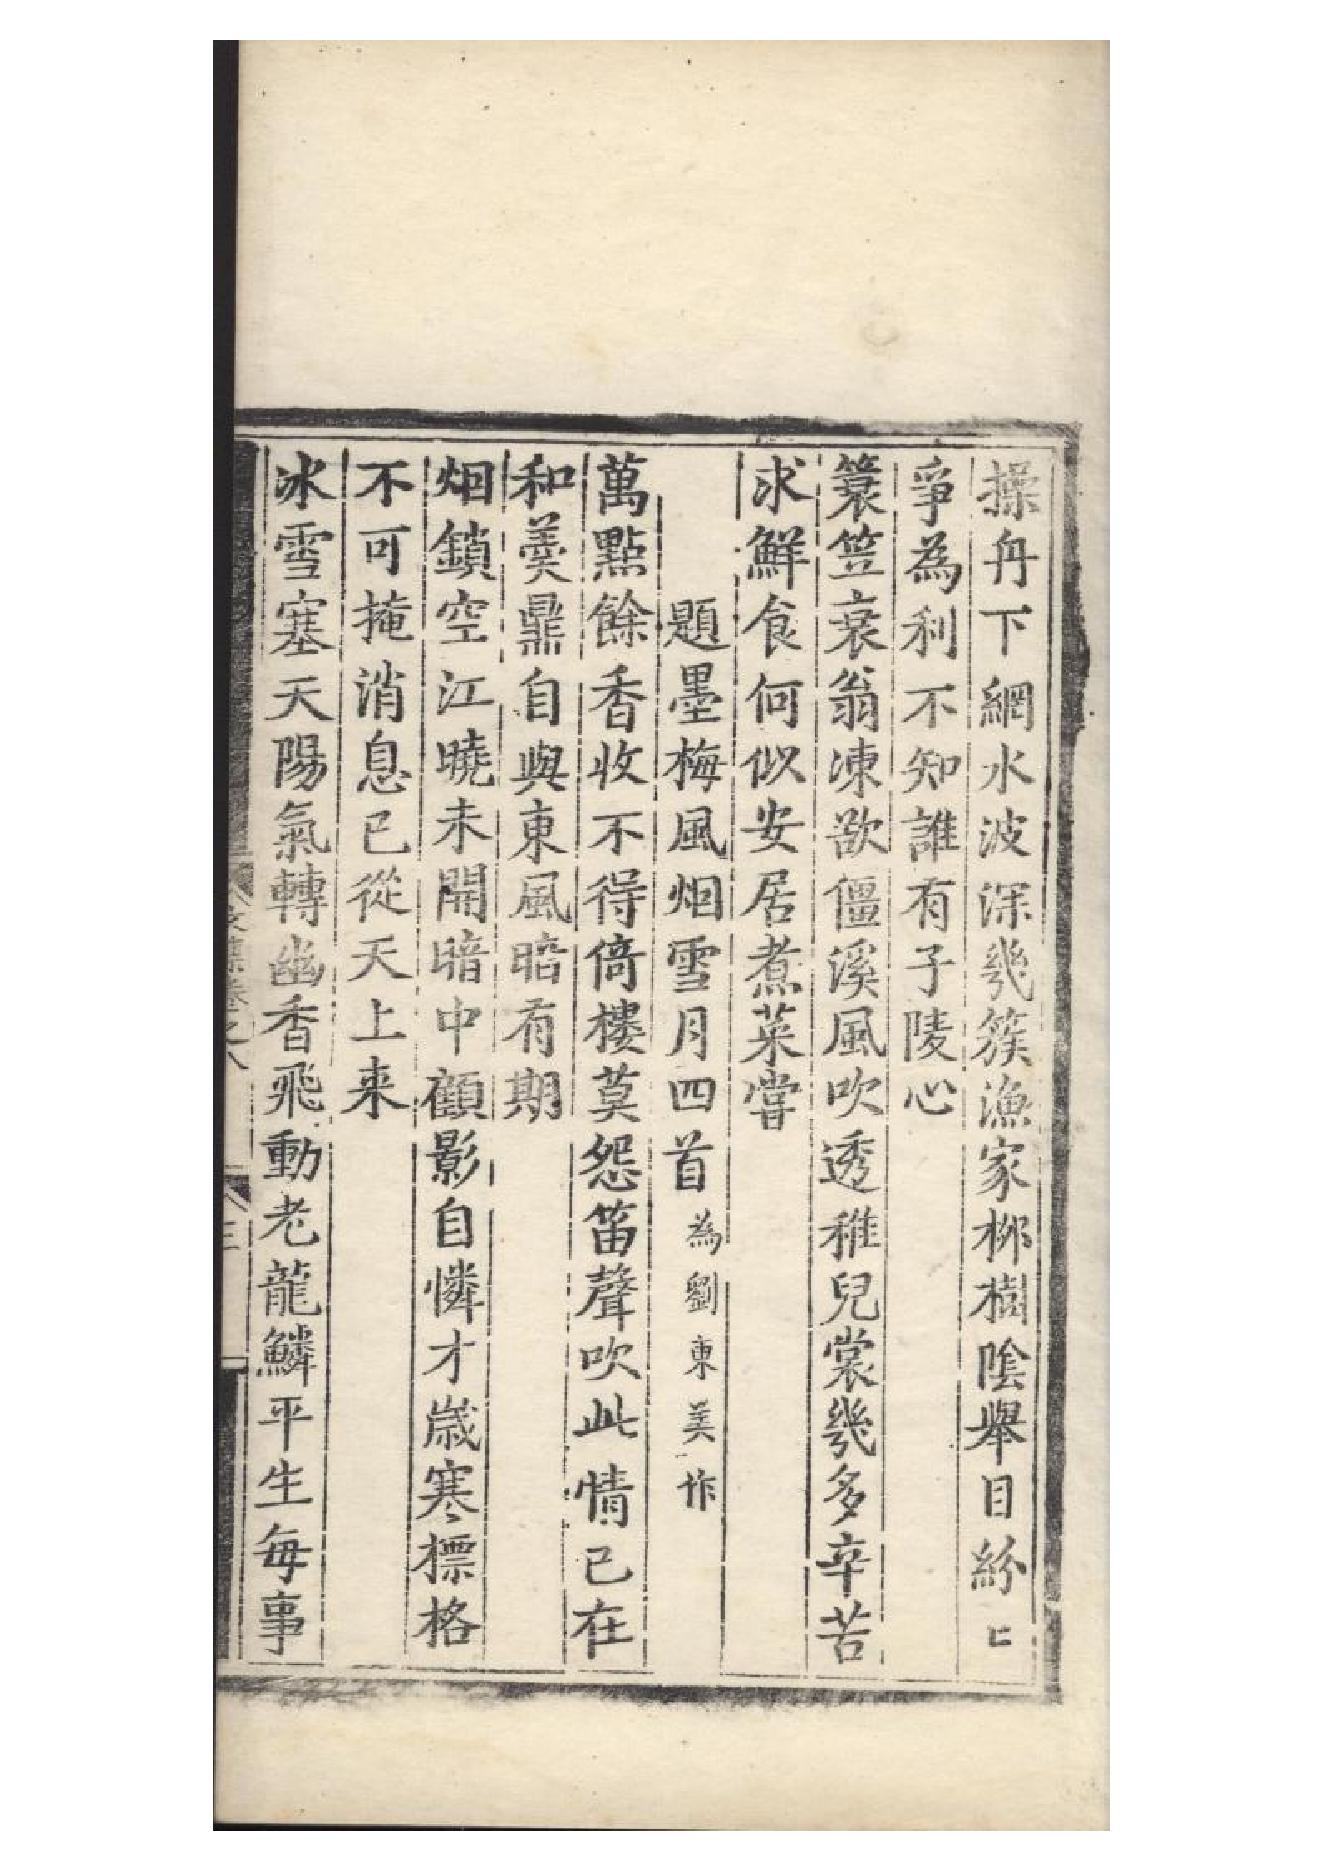 操舟下網水波深幾簇漁家柳樹陰舉目紛〻
爭為利不知誰有子陵心
簔笠衰翁凍欲僵溪風吹透稚兒裳幾多辛苦
求鮮食何似安居煮菜嘗
題墨梅風烟雪月四首為劉東美作
萬點餘香收不得倚樓莫怨笛聲吹此情已在
和羹鼎自與東風暗有期
烟鎖空江曉未開暗中顧影自憐才歲寒標格
不可掩消息已從天上来
冰雪塞天陽氣轉幽香飛動老龍鱗平生每事
卷之八
三